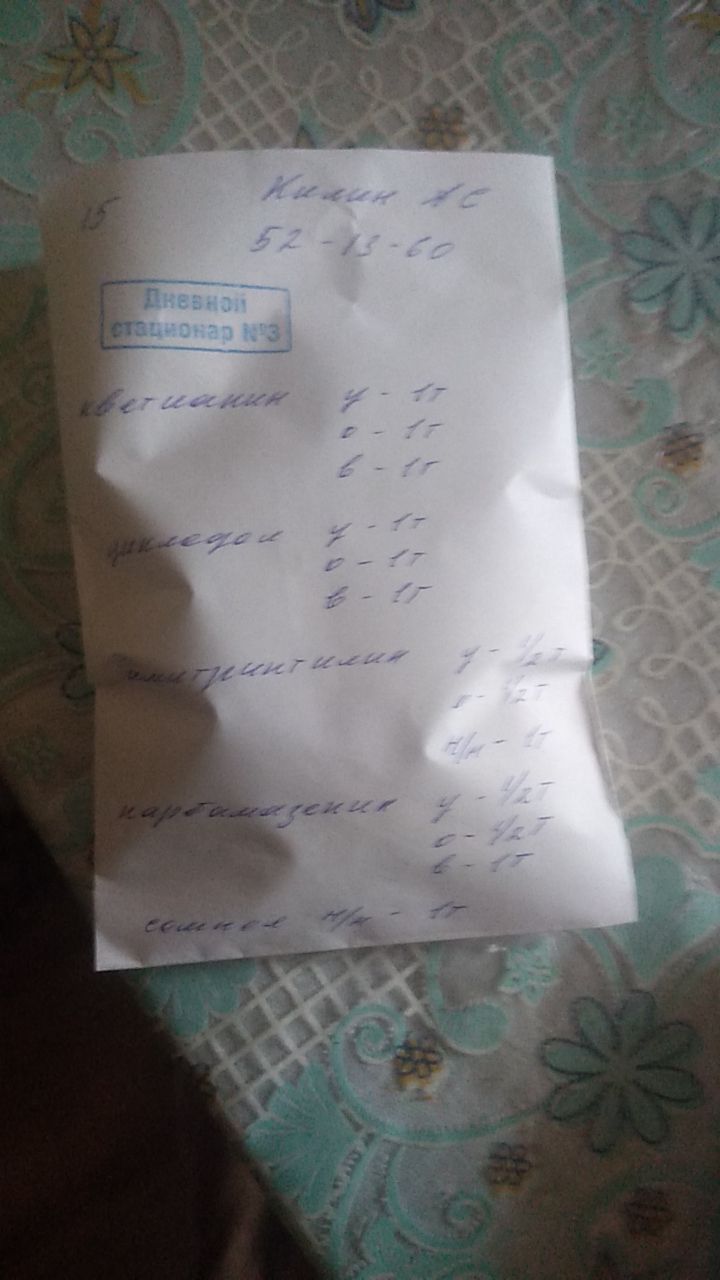 15 Килин АС
52-13-60
Дневной
стационар №3
кветиапин у - 1т
о - 1т
в - 1т
циклодол у - 1т
о - 1т
в - 1т
амитриптилин у - 1/2т
о - 1/2т
н/н - 1т
карбамазепин у - 1/2т
о - 1/2т
в - 1т
сомнол н/н - 1т